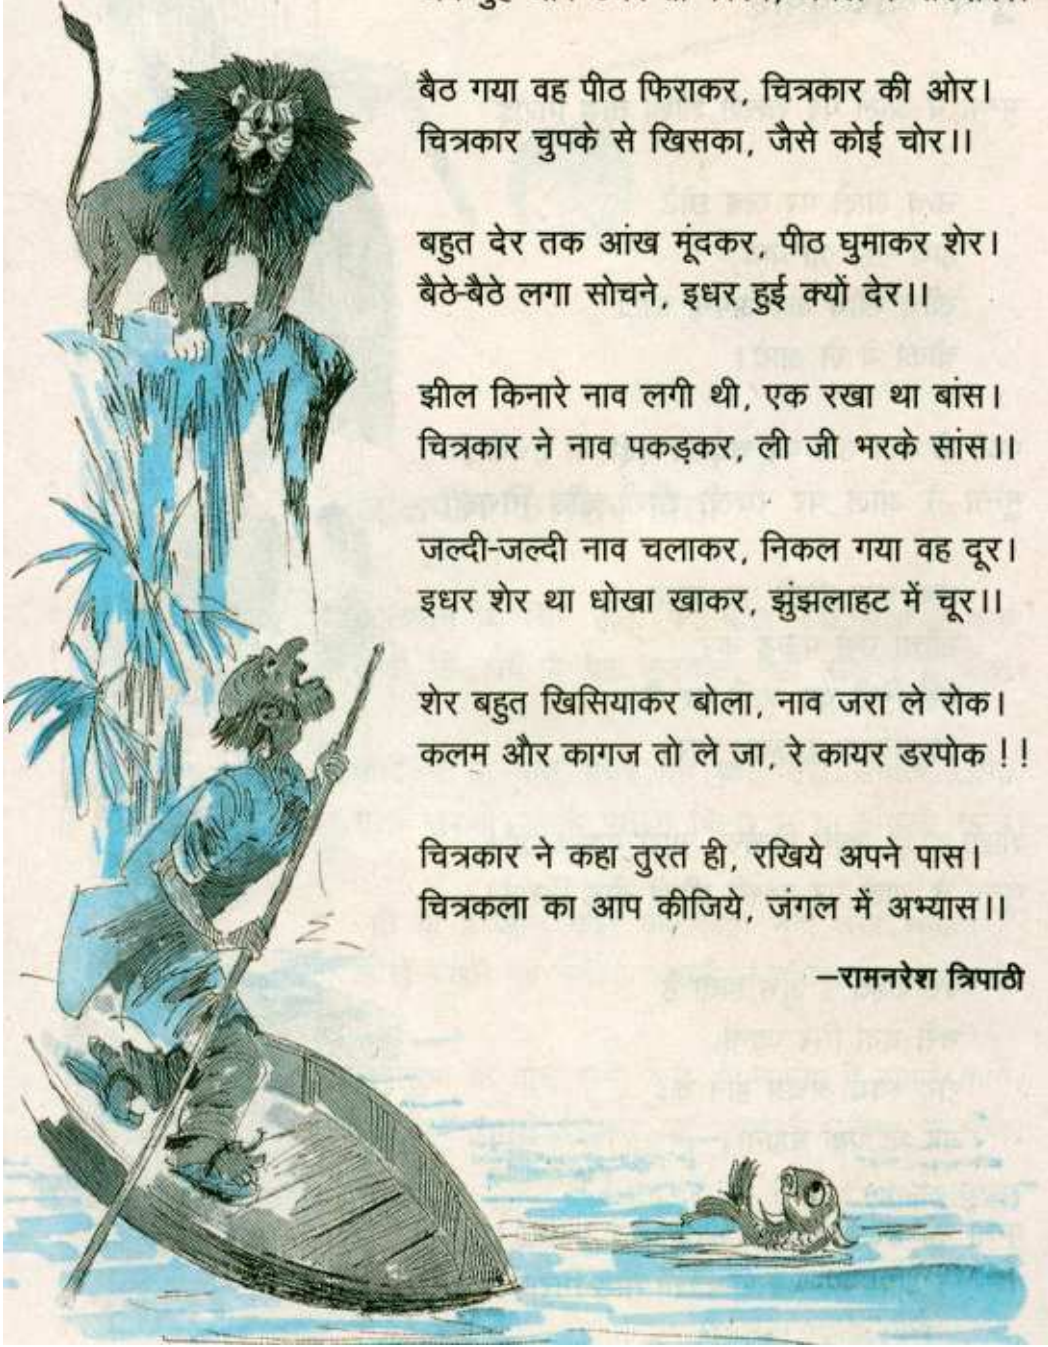 बैठ गया वह पीठ फिराकर, चित्रकार की ओर।
चित्रकार चुपके से खिसका, जैसे कोई चोर।।
बहुत देर तक आंख मूंदकर, पीठ घुमाकर शेर।
बैठे-बैठे लगा सोचने, इधर हुई क्यों देर।।
झील किनारे नाव लगी थी, एक रखा था बांस।
चित्रकार ने नाव पकड़कर, ली जी भरके सांस।।
जल्दी-जल्दी नाव चलाकर, निकल गया वह दूर।
इधर शेर था धोखा खाकर, झुंझलाहट में चूर।।
शेर बहुत खिसियाकर बोला, नाव जरा ले रोक।
कलम और कागज तो ले जा, रे कायर डरपोक ! !
चित्रकार ने कहा तुरत ही, रखिये अपने पास।
चित्रकला का आप कीजिये, जंगल में अभ्यास।।
–रामनरेश त्रिपाठी